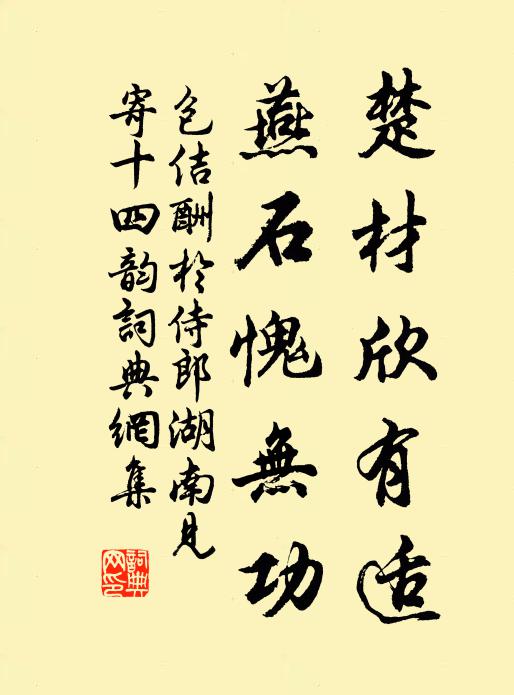 楚材欣有适
燕石愧無功
包佶酬於侍郎湖南見
寄十四韵詞典網集
詞典
网印